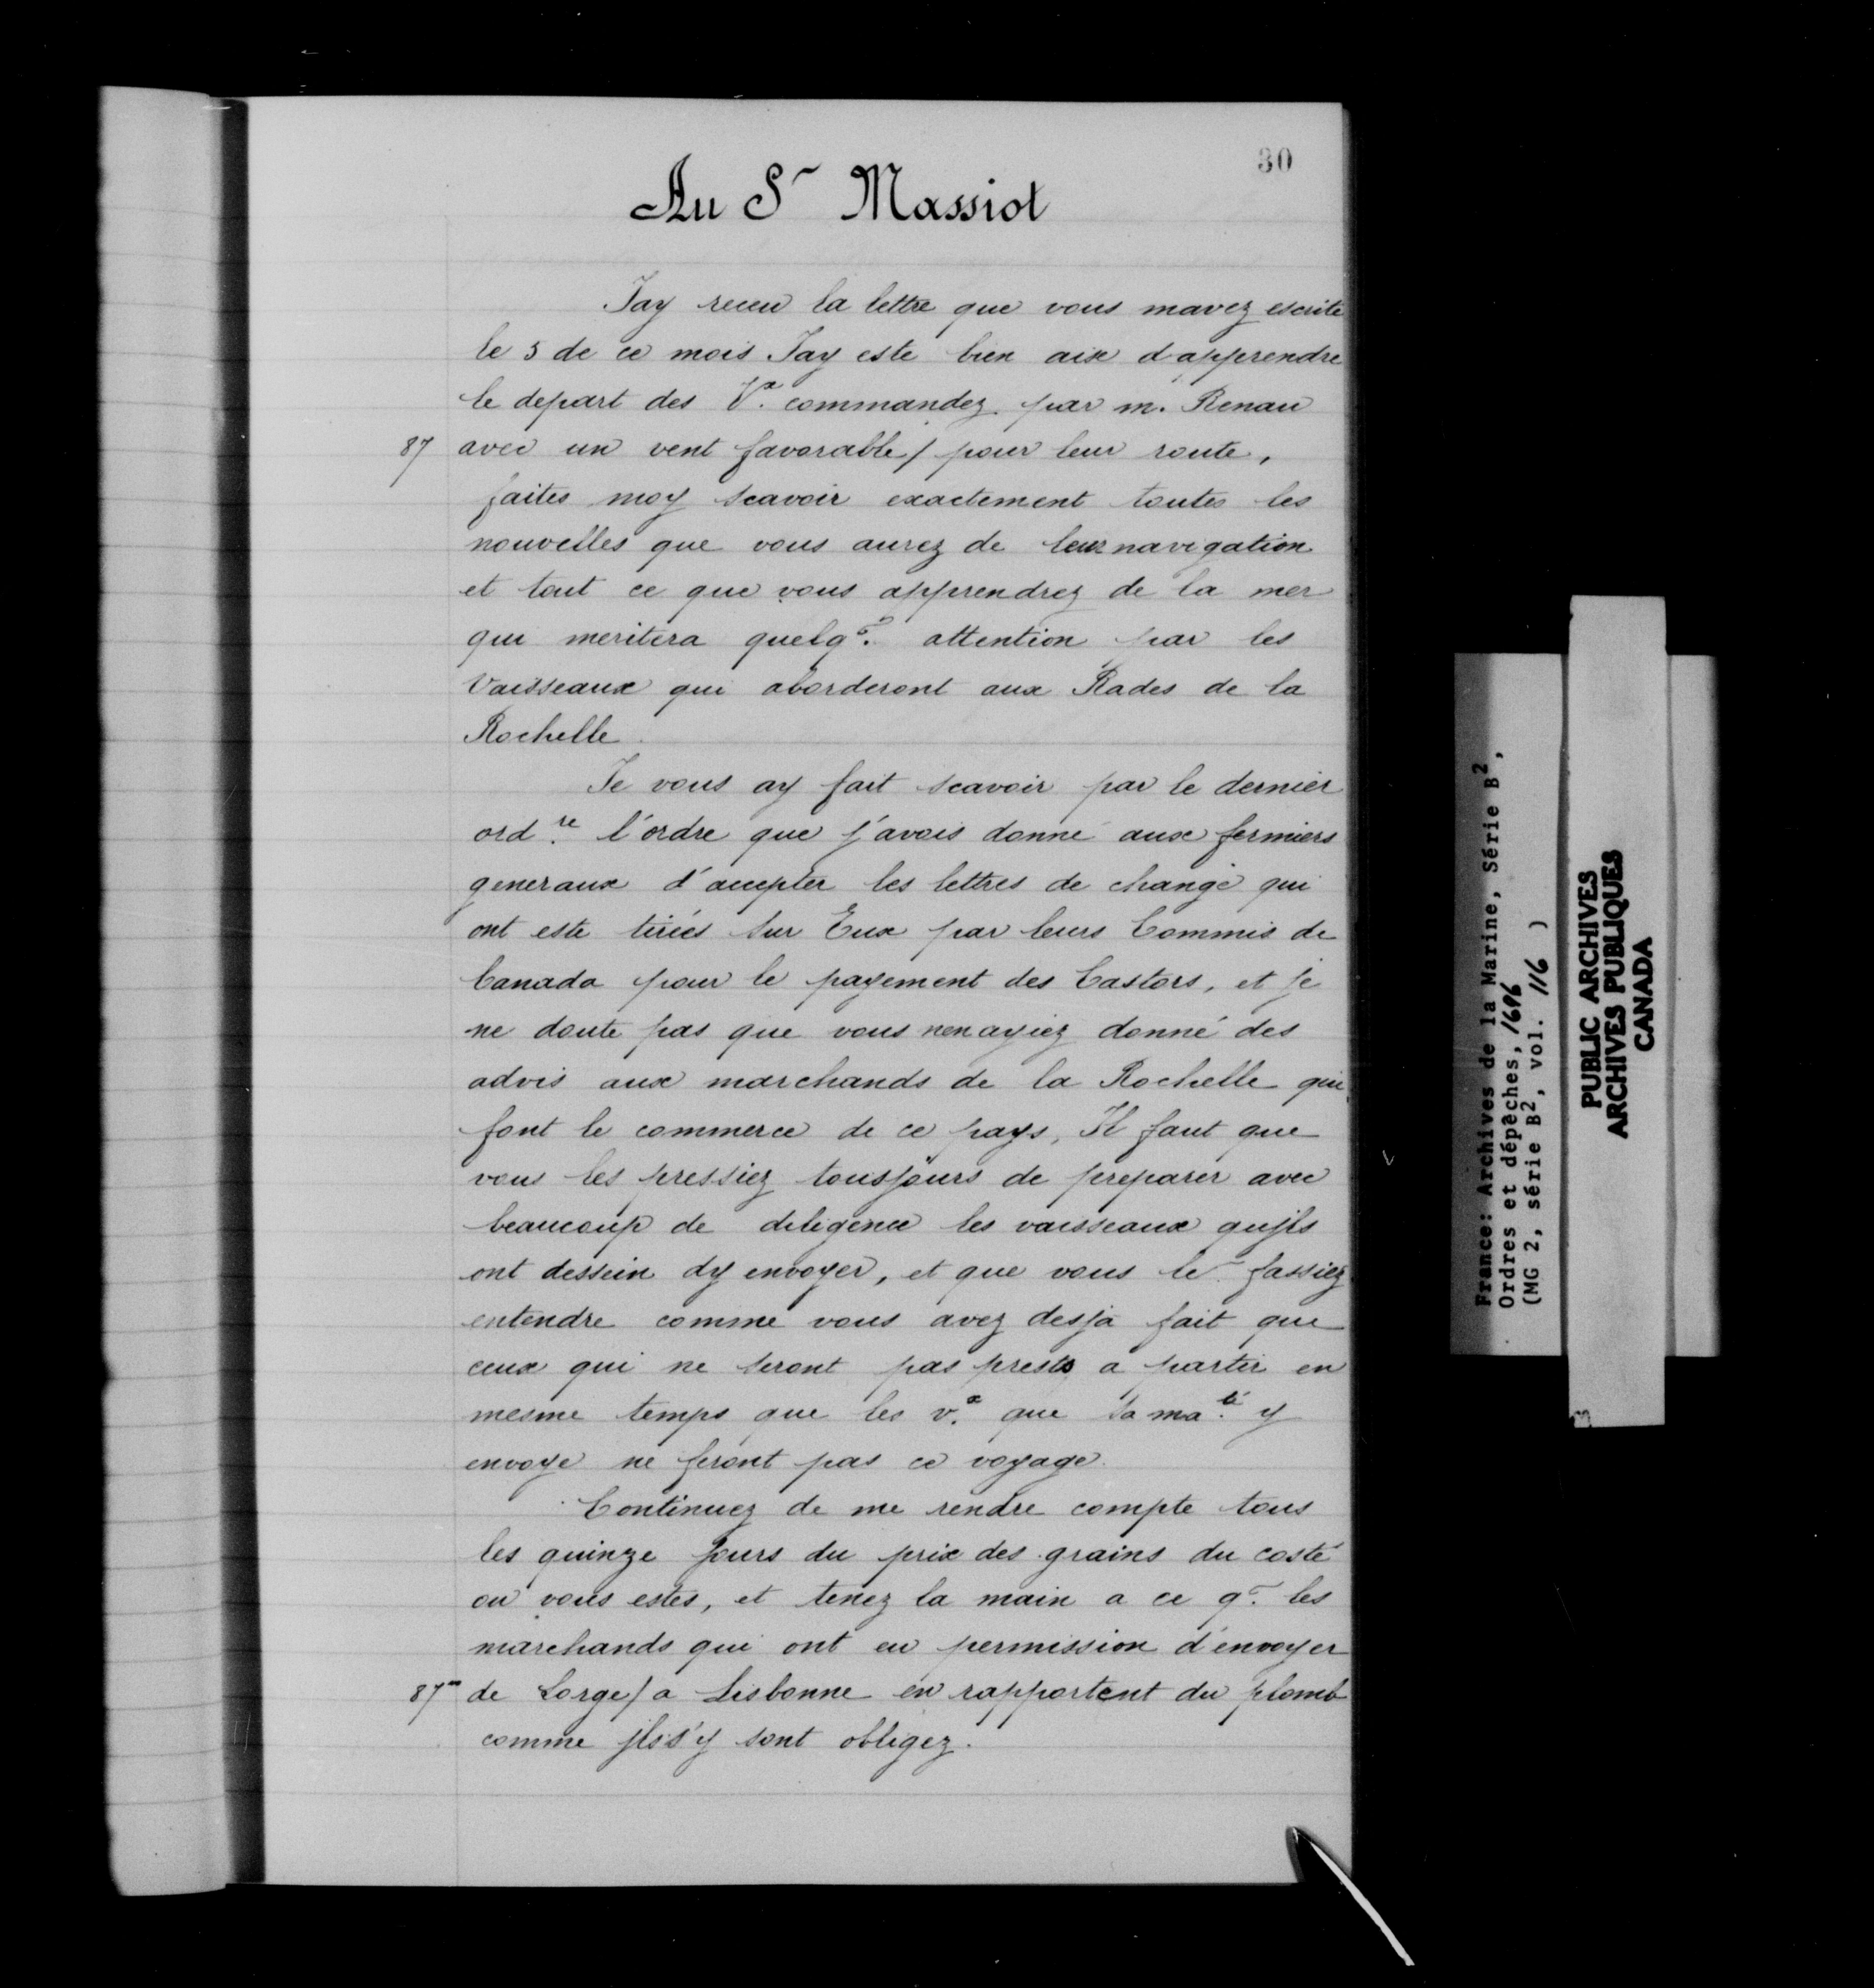 30
Au Sr Massiot
Jay receu la lettre que vous mavez escrite
le 5 de ce mois Jay este bien aise d'apprendre
le depart des Vx. commandez par m. Renau
87 avec un vent favorable / pour leur route,
faites moy scavoir exactement toutes les
nouvelles que vous aurez de leur navigation
et tout ce que vous apprendrez de la mer
qui meritera quelq~. attention par les
Vaisseaux qui aborderont aux Rades de la
Rochelle.
Je vous ay fait scavoir par le dernier
ord.re l'ordre que j'avois donné aux fermiers
generaux d'accepter les lettres de change qui
ont este tirées sur Eux par leurs Commis de
Canada pour le payement des Castors, et je
ne doute pas que vous nen ayiez donné des
advis aux marchands de la Rochelle qui
font le commerce de ce pays, Il faut que
vous les pressiez tousjours de preparer avec
beaucoup de diligence les vaisseaux qujls
ont dessein dy envoyer, et que vous le~. fassiez
entendre comme vous avez desja fait que
ceux qui ne seront pas prests a partir en
mesme temps que les v.x que sa ma.té y
envoye ne feront pas ce voyage.
Continuez de me rendre compte tous
les quinze jours du prix des grains du costé
ou vous estes, et tenez la main a ce q~. les
marchands qui ont eu permission d'envoyer
87vo de Lorge / a Lisbonne en rapportent du plomb
comme jls s'y sont obligez.
France: Archives de la Marine, Série B2,
Ordres et dépêches, 1696
(MG 2, série B2, vol. 116 )
PUBLIC ARCHIVES
ARCHIVES PUBLIQUES
CANADA